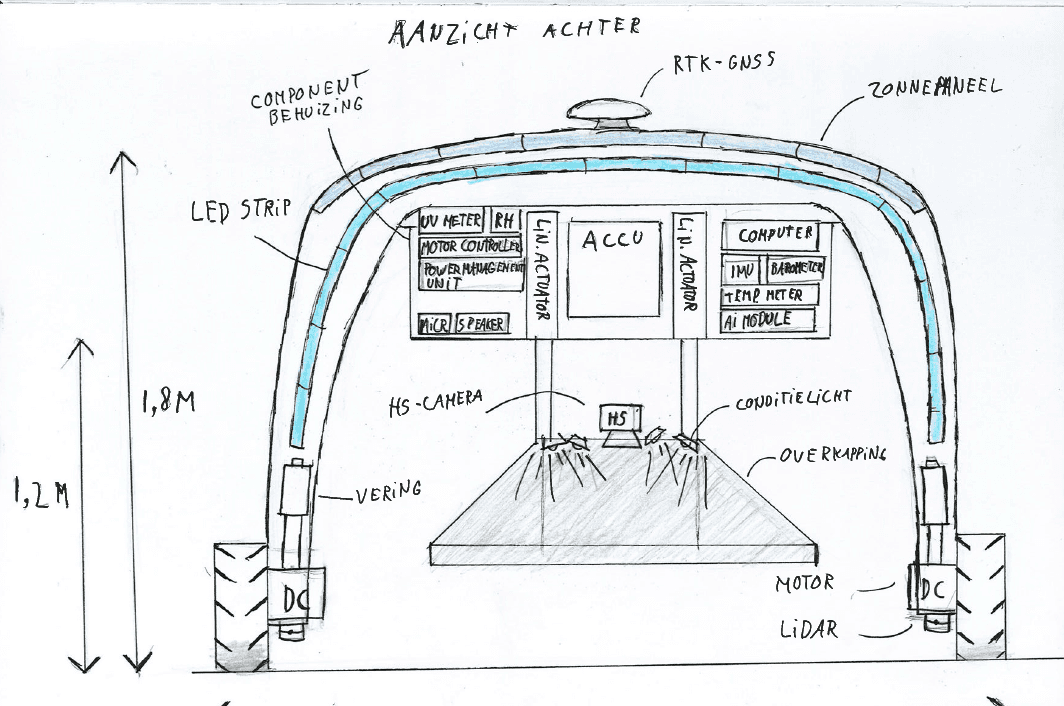 AANZICHT ACHTER
RTK-GNSS
ZONNEPANEEL
COMPONENT
BEHUIZING
LED STRIP
UV METER
RH
MOTOR CONTROLLER
POWER MANAGEMENT
UNIT
MICR
SPEAKER
LIN. ACTUATOR
ACCU
LIN. ACTUATOR
COMPUTER
IMU
BAROMETER
TEMP METER
Ai MODULE
1,8 M
HS-CAMERA
HS
CONDITIELICHT
OVERKAPPING
1,2 M
VERING
MOTOR
DC
DC
LiDAR